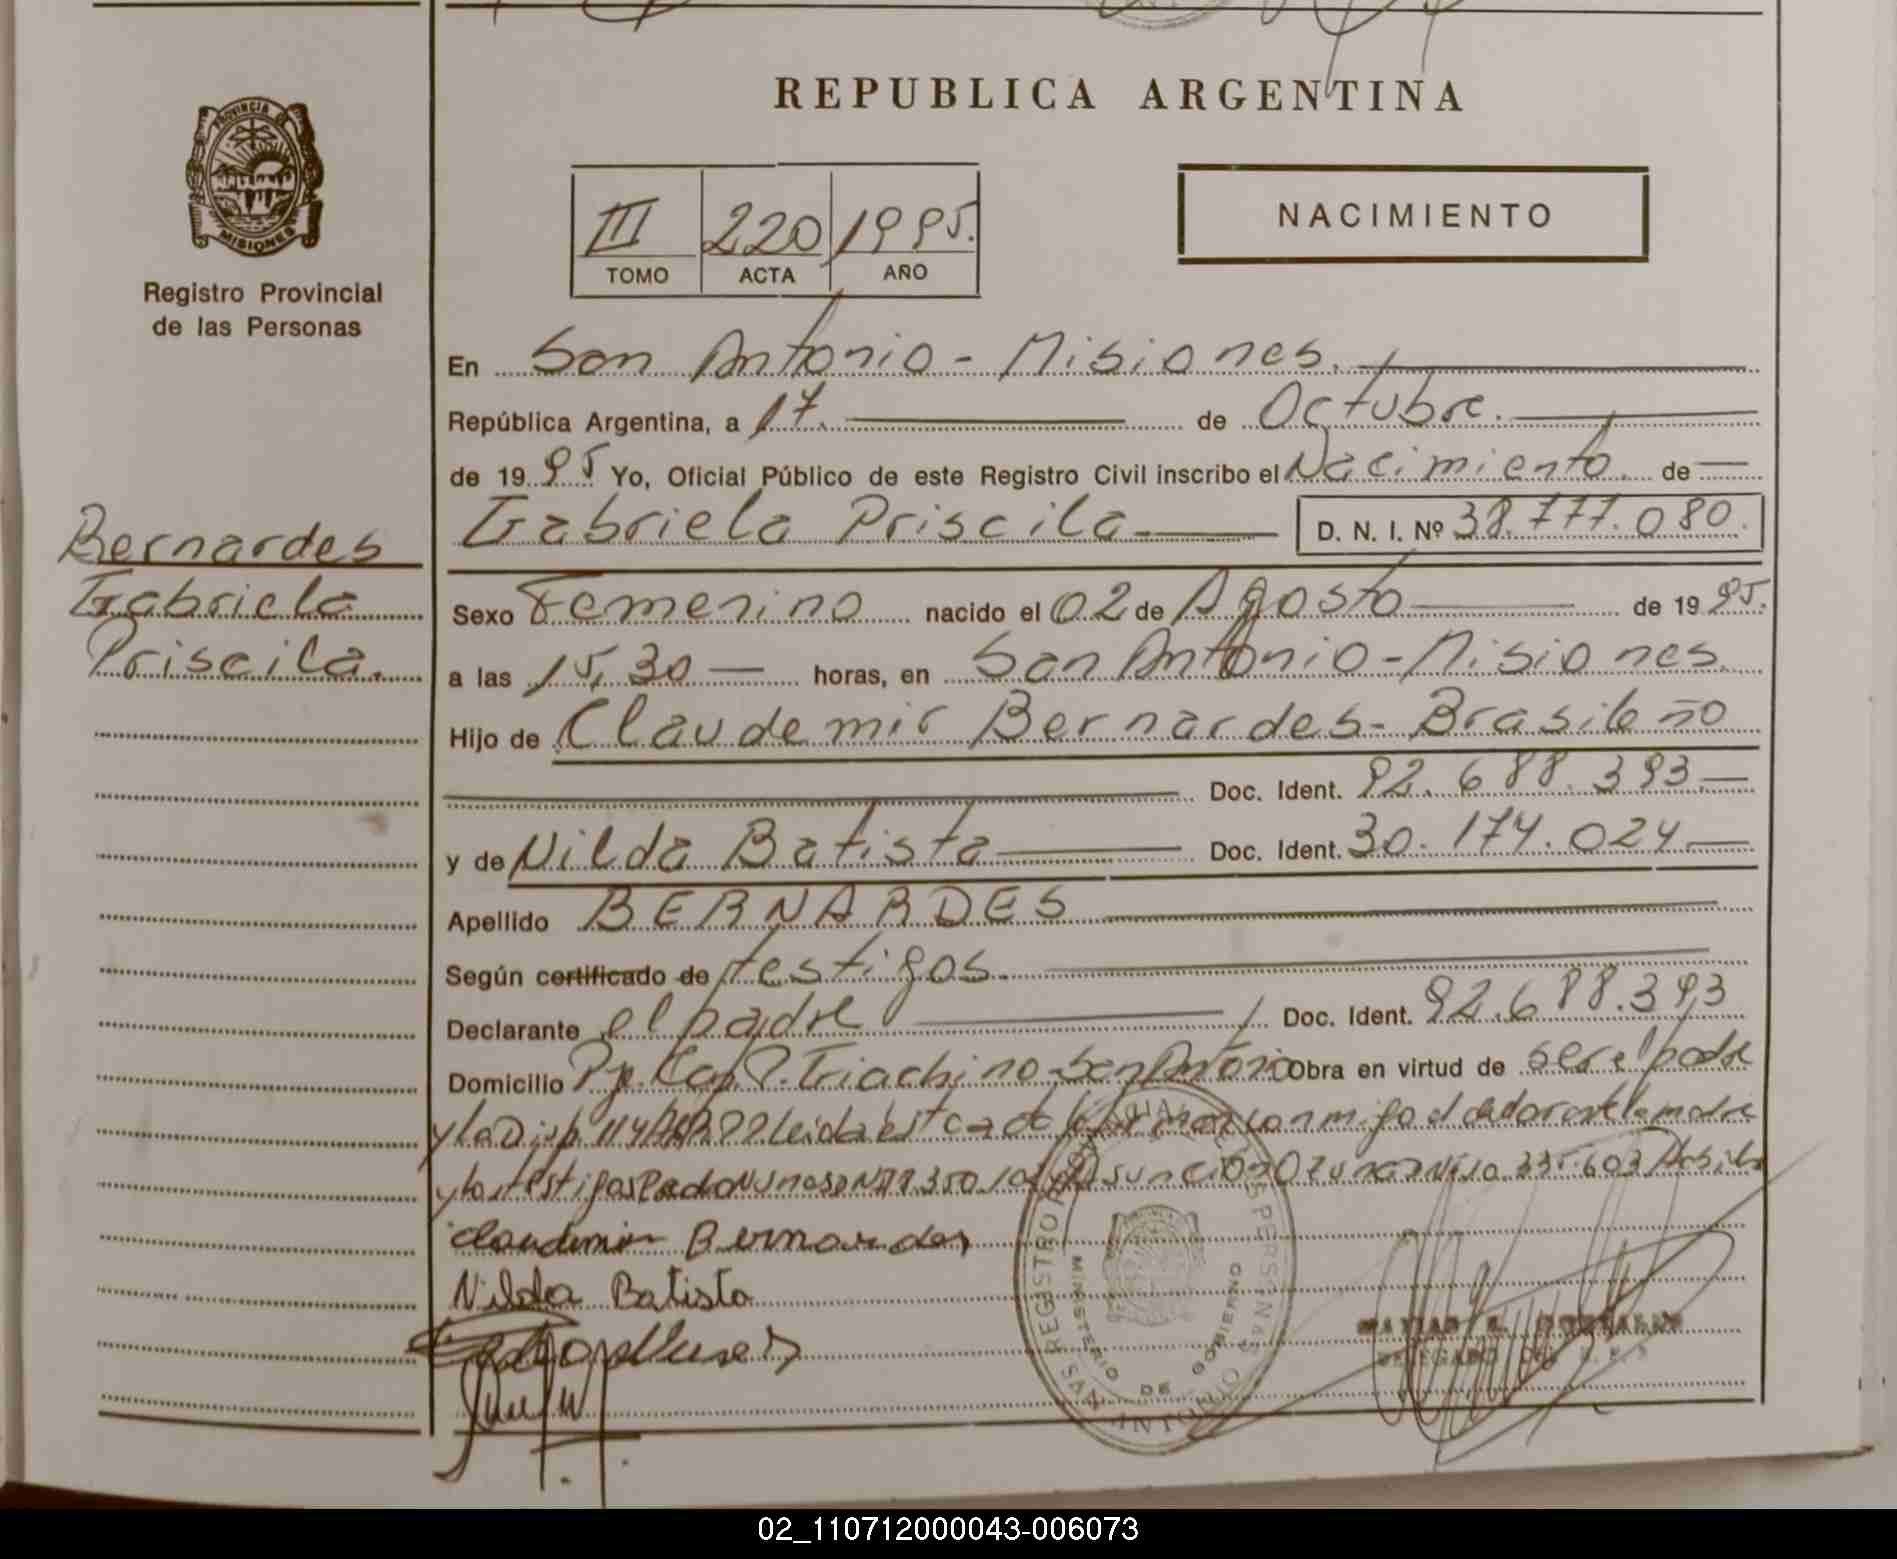 REPUBLICA ARGENTINA
PROVINCIA DE
MISIONES
Registro Provincial
de las Personas
III 220 1995.
TOMO ACTA AÑO
NACIMIENTO
En San Antonio - Misiones.
República Argentina, a 17. de Octubre.
de 19 95 Yo, Oficial Público de este Registro Civil inscribo el Nacimiento. de
Bernardes
Gabriela
Priscila.
Gabriela Priscila D. N. I. Nº 38.777.080.
Sexo Femenino nacido el 02 de Agosto de 19 95.
a las 15,30 horas, en San Antonio - Misiones.
Hijo de Claudemir Bernardes - Brasileño
Doc. Ident. 92.688.393
y de Nilda Batista Doc. Ident. 30.174.024
Apellido BERNARDES
Según certificado de testigos.
Declarante el padre Doc. Ident. 92.688.393
Domicilio San Antonio Obra en virtud de ser el padre
y la Disp. Leida esta acta la firman conmigo el la madre
y los testigos Asunción
Claudemir Bernardes
Nilda Batista
REGISTRO PERSONAS
MINISTERIO DE GOBIERNO
SAN ANTONIO
DELEGADO
02_110712000043-006073